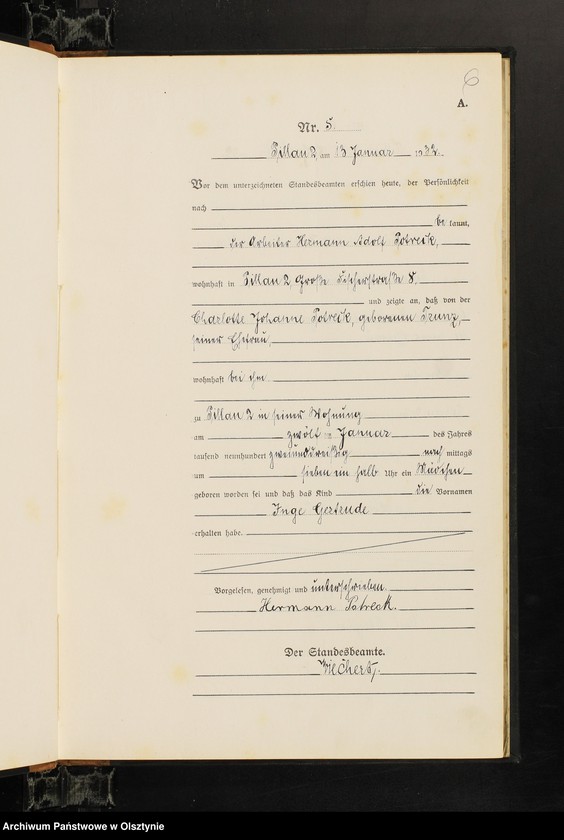 6
A.
Nr. 5.
Pillau 2, am 13 Januar 1932.
Vor dem unterzeichneten Standesbeamten erschien heute, der Persönlichkeit
nach
be kannt,
der Arbeiter Hermann Adolf Potreck,
wohnhaft in Pillau 2, Große Fischerstraße 8,
und zeigte an, daß von der
Charlotte Johanne Potreck, geborenen Trunz,
seiner Ehefrau,
wohnhaft bei ihm
zu Pillau 2 in seiner Wohnung
am zwölf ten Januar des Jahres
tausend neunhundert zweiunddreißig nach mittags
um sieben ein halb Uhr ein Mädchen
geboren worden sei und daß das Kind die Vornamen
Inge Gertrude
erhalten habe.
Vorgelesen, genehmigt und unterschrieben
Hermann Potreck.
Der Standesbeamte.
Wiechert.
Archiwum Państwowe w Olsztynie